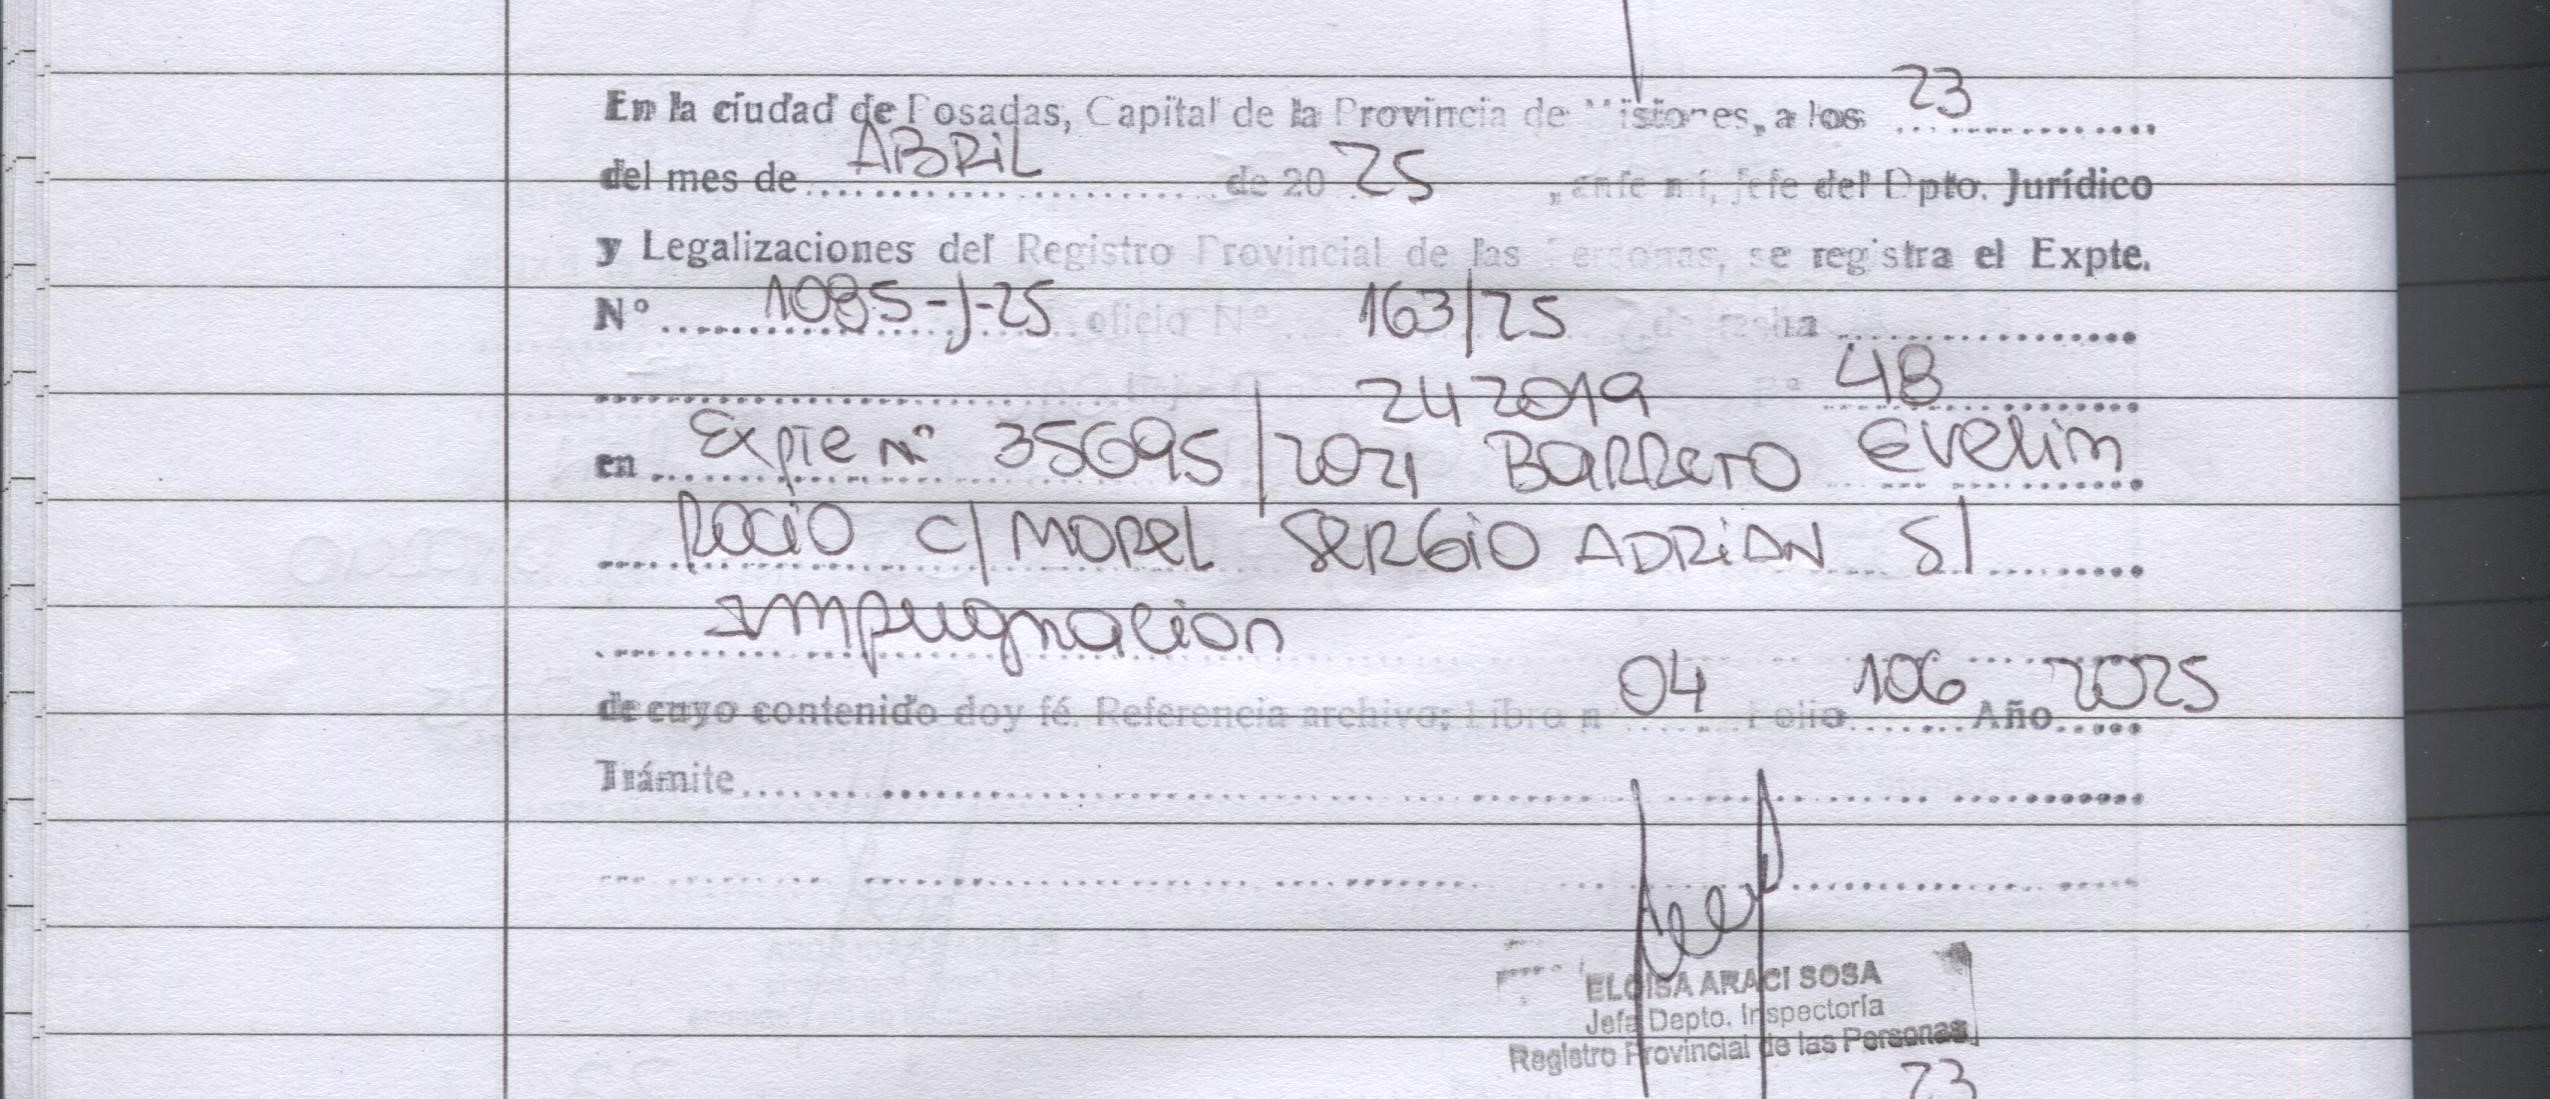 En la ciudad de Posadas, Capital de la Provincia de Misiones, a los 23
del mes de ABRIL de 20 25, ante mí, Jefe del Dpto. Jurídico
y Legalizaciones del Registro Provincial de las Personas, se registra el Expte.
N° 1085-J-25 oficio N° 163/25 de fecha
242019 48
en Expte N° 35695/2021 BARRETO Evelin
Rocio C/ MOREL SERGIO ADRIAN S/
Impugnacion
de cuyo contenido doy fé. Referencia archivo: Libro n 04 Folio 106 Año 2025
Trámite
ELOISA ARACI SOSA
Jefa Depto. Inspectoría
Registro Provincial de las Personas
23